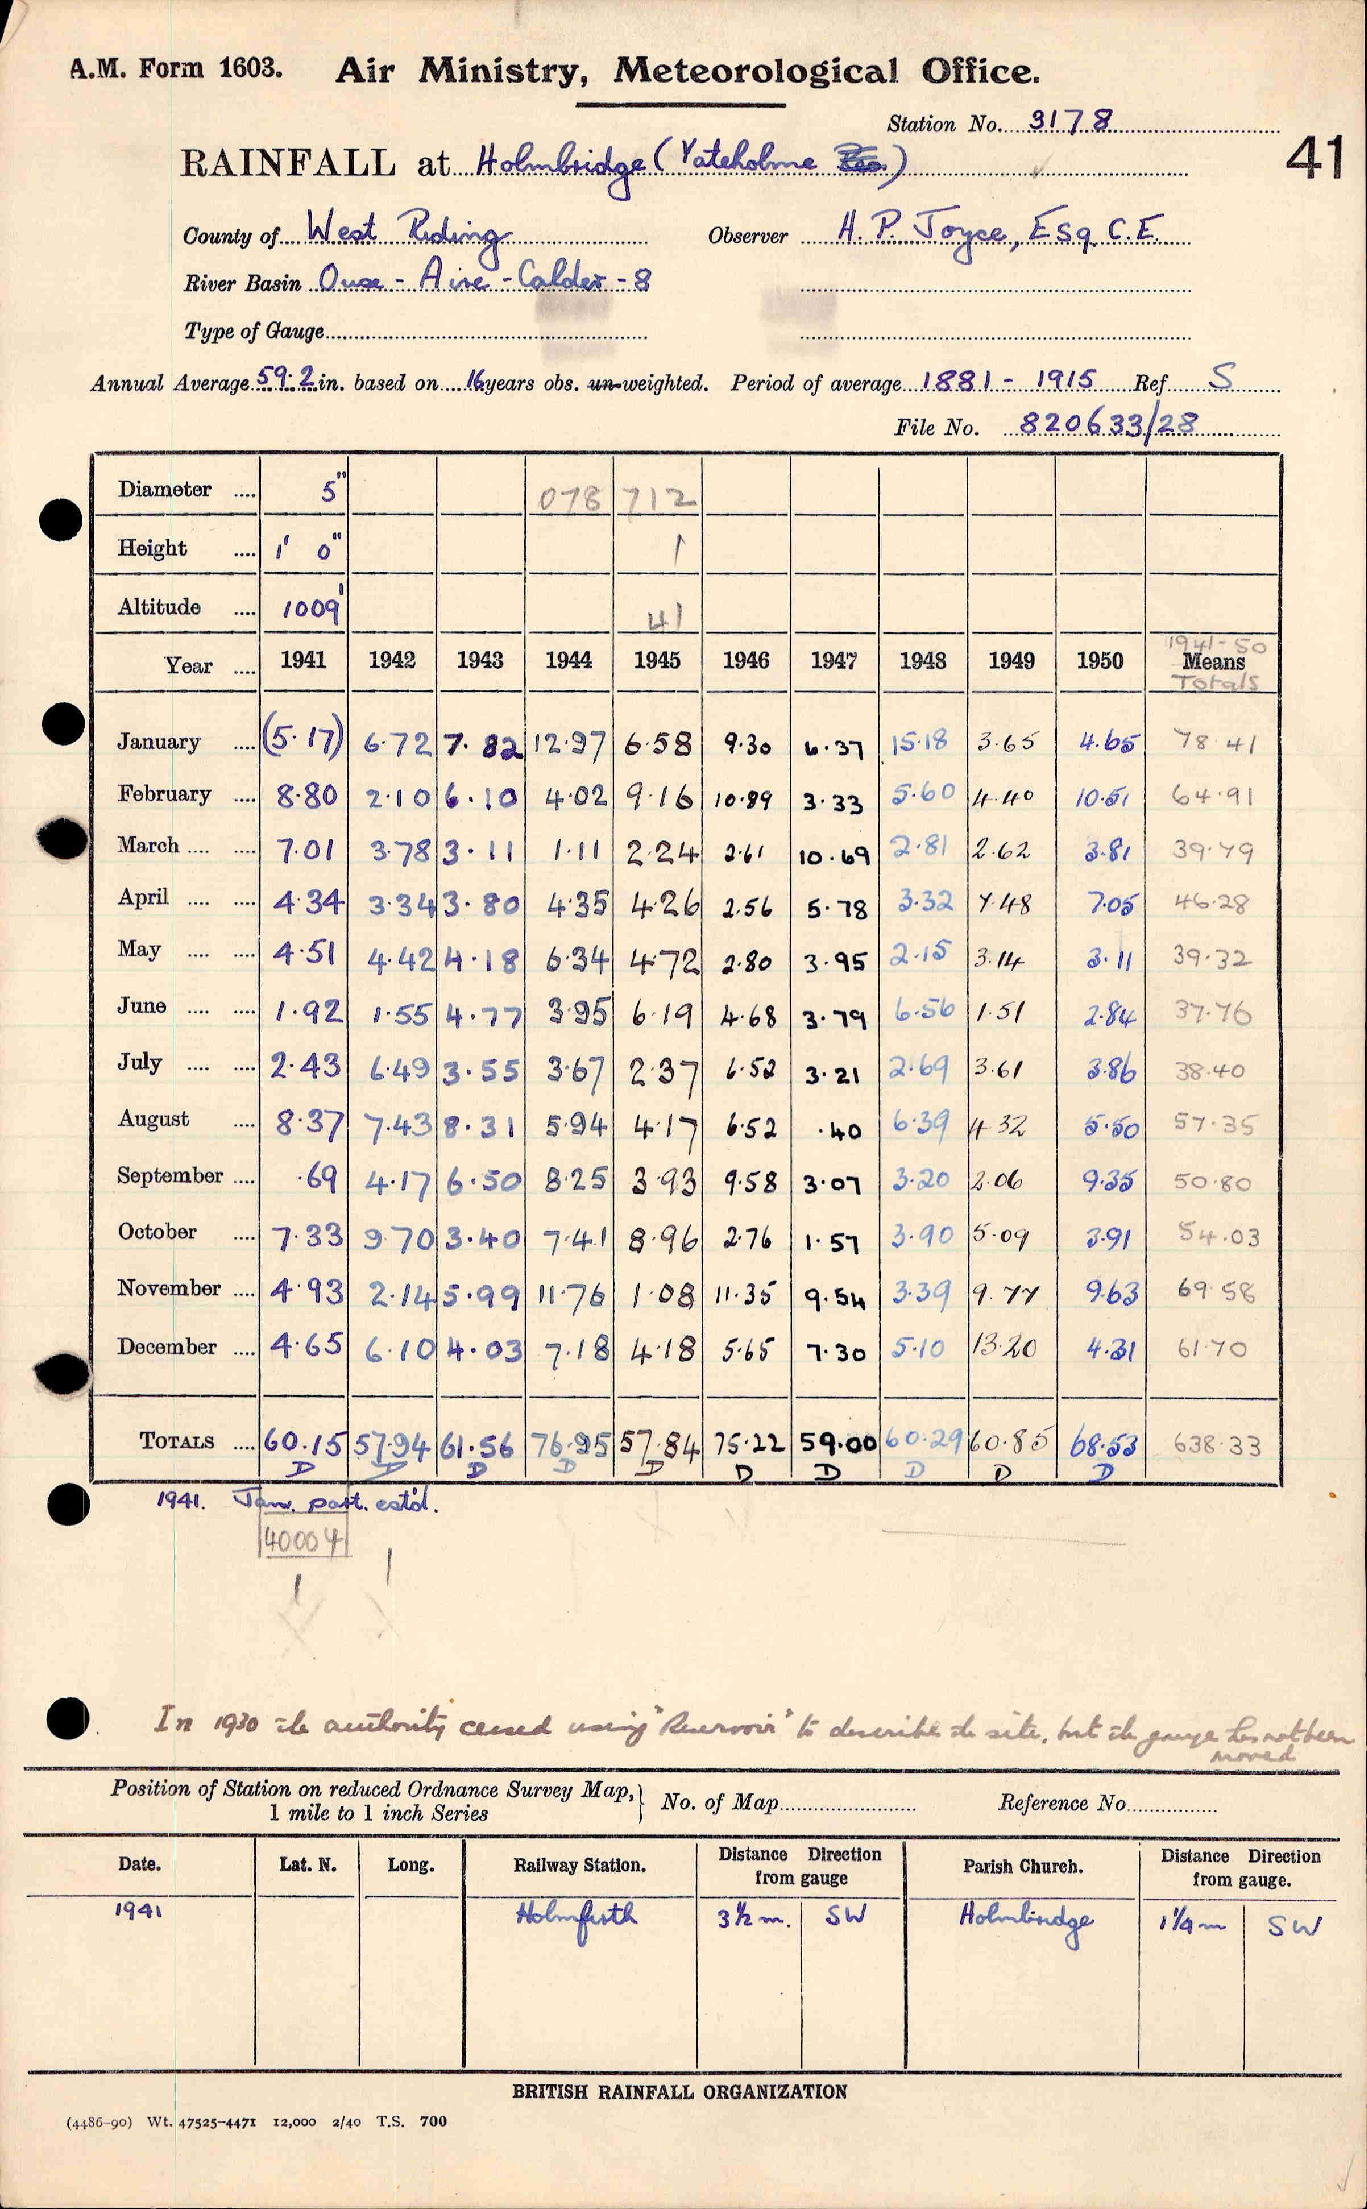 A.M. Form 1603. Air Ministry, Meteorological Office.
Station No. 3178
41
RAINFALL at Holmbridge (Yateholme Res.)
County of West Riding Observer H. P. Joyce, Esq. C.E.
River Basin Ouse - Aire - Calder - 8
Type of Gauge
Annual Average 59.2 in. based on 16 years obs. un-weighted. Period of average 1881 - 1915 Ref S
File No. 820633/28
Diameter .... 5" 078 712
Height .... 1' 0" 1
Altitude .... 1009' 41
1941-50
Year .... 1941 1942 1943 1944 1945 1946 1947 1948 1949 1950 Means
Totals
January .... (5.17) 6.72 7.82 12.97 6.58 9.30 6.37 15.18 3.65 4.65 78.41
February .... 8.80 2.10 6.10 4.02 9.16 10.89 3.33 5.60 4.40 10.51 64.91
March .... .... 7.01 3.78 3.11 1.11 2.24 2.61 10.69 2.81 2.62 3.81 39.79
April .... .... 4.34 3.34 3.80 4.35 4.26 2.56 5.78 3.32 7.48 7.05 46.28
May .... .... 4.51 4.42 4.18 6.34 4.72 2.80 3.95 2.15 3.14 3.11 39.32
June .... .... 1.92 1.55 4.77 3.95 6.19 4.68 3.79 6.56 1.51 2.84 37.76
July .... .... 2.43 6.49 3.55 3.67 2.37 6.52 3.21 2.69 3.61 3.86 38.40
August .... 8.37 7.43 8.31 5.94 4.17 6.52 .40 6.39 4.32 5.50 57.35
September .... .69 4.17 6.50 8.25 3.93 9.58 3.07 3.20 2.06 9.35 50.80
October .... 7.33 9.70 3.40 7.41 8.96 2.76 1.57 3.90 5.09 3.91 54.03
November .... 4.93 2.14 5.99 11.76 1.08 11.35 9.54 3.39 9.77 9.63 69.58
December .... 4.65 6.10 4.03 7.18 4.18 5.65 7.30 5.10 13.20 4.31 61.70
TOTALS .... 60.15 57.94 61.56 76.95 57.84 75.22 59.00 60.29 60.85 68.53 638.33
D D D D D D D D D D
1941. Jan. part. est'd.
40004
1 1
In 1930 the authority ceased using "Reservoir" to describe the site, but the gauge has not been
moved
Position of Station on reduced Ordnance Survey Map, } No. of Map Reference No.
1 mile to 1 inch Series
Date. Lat. N. Long. Railway Station. Distance Direction from gauge Parish Church. Distance Direction from gauge.
1941 Holmfirth 3½ m. SW Holmbridge 1¼ m SW
BRITISH RAINFALL ORGANIZATION
(4486-90) Wt. 47525-4471 12,000 2/40 T.S. 700